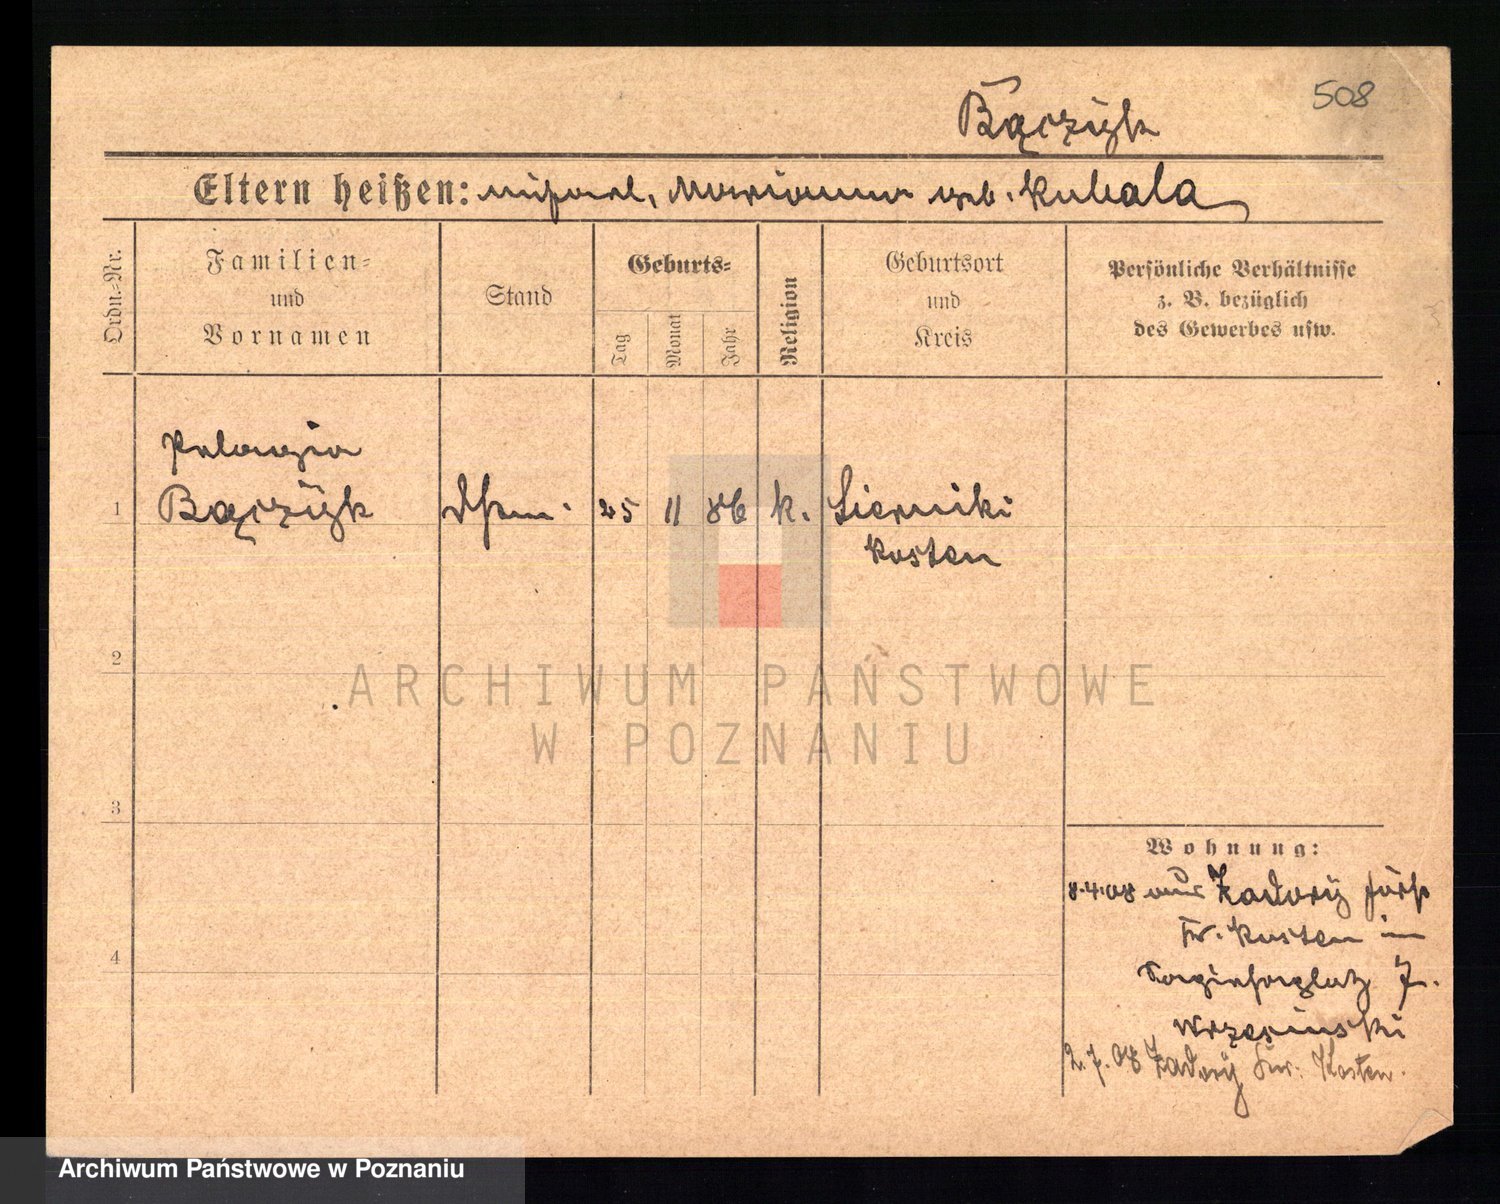 508
Bączyk
Eltern heißen: Michael, Marianna geb. Kubala
Ordn.-Nr.
Familien-
und
Vornamen
Stand
Geburts-
Tag
Monat
Jahr
Religion
Geburtsort
und
Kreis
Persönliche Verhältnisse
z. B. bezüglich
des Gewerbes usw.
Pelagia
1 Bączyk 25 11 86 k. Sierniki
Kosten
2
3
4
Wohnung:
8.4.08 aus Zadory
Kr. Kosten in
Kapiehaplatz 7.
Wrzesinski
2.7.08 Zadory Kr. Kosten.
ARCHIWUM PAŃSTWOWE
W POZNANIU
Archiwum Państwowe w Poznaniu